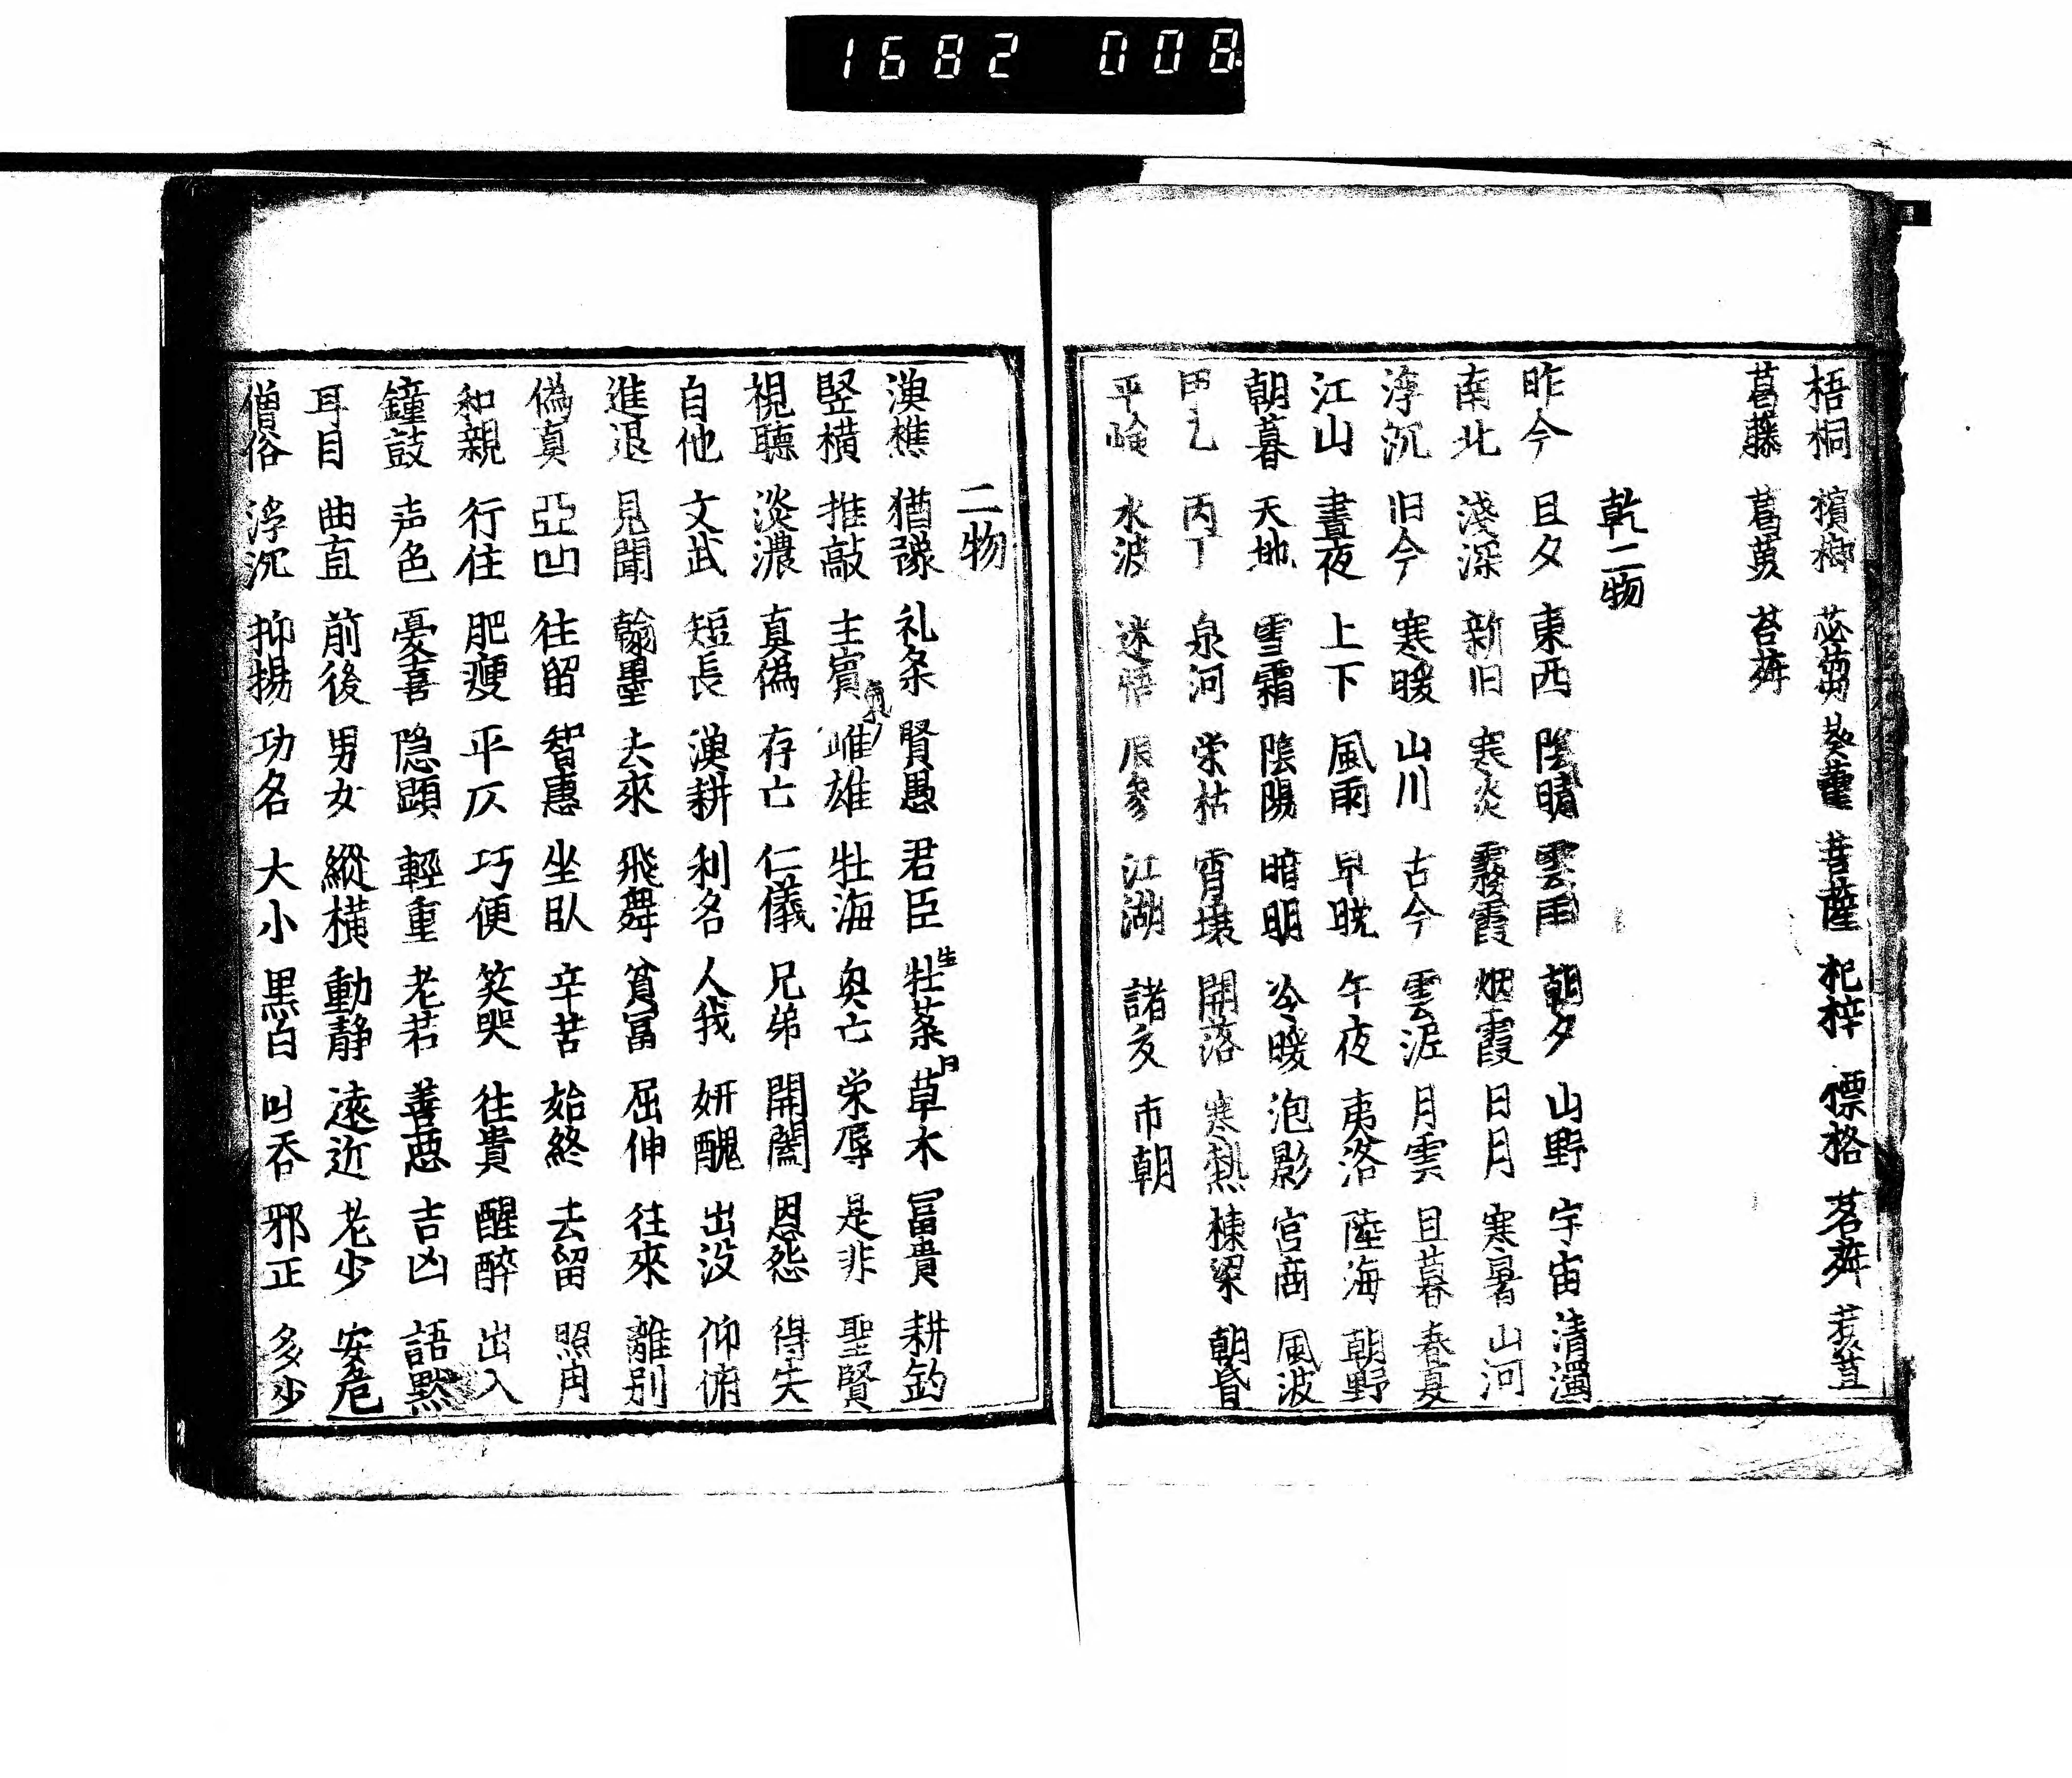 1682 008
梧桐 檳榔 苾蒭 葵藿 菩薩 杞梓 標格 茗荈 葱苴
葛藤 葛蔓 苔荈
乾二物
昨今 旦夕 東西 陰晴 雲雨 朝夕 山野 宇宙 清濁
南北 淺深 新旧 寒炎 霧霞 烟霞 日月 寒暑 山河
浮沉 旧今 寒暖 山川 古今 雲泥 月雲 旦暮 春夏
江山 晝夜 上下 風雨 早晩 午夜 夷洛 陸海 朝野
朝暮 天地 雪霜 陰陽 暗明 冷暖 泡影 宮商 風波
甲乙 丙丁 泉河 栄枯 霄壌 開落 寒熱 棟梁 朝昏
平嶮 水波 迷悟 辰参 江湖 諸友 市朝
二物
漁樵 猶豫 礼条 賢愚 君臣 牡荼 草木 冨貴 耕釣
竪横 推敲 主賓 雌雄 牡海 奥亡 栄辱 是非 聖賢
視聴 淡濃 真偽 存亡 仁儀 兄弟 開闔 恩怨 得失
自他 文武 短長 漁耕 利名 人我 妍醜 出没 仰俯
進退 見聞 翰墨 去來 飛舞 貧冨 屈伸 往來 離別
偽真 亞凹 往留 智惠 坐臥 辛苦 始終 去留 照冉
和親 行住 肥痩 平仄 巧便 笑哭 往貴 醒醉 出入
鐘鼓 声色 憂喜 隠顕 輕重 老若 善悪 吉凶 語黙
耳目 曲直 前後 男女 縱横 動静 遠近 老少 安危
僧俗 浮沉 抑揚 功名 大小 黒白 吐呑 邪正 多少